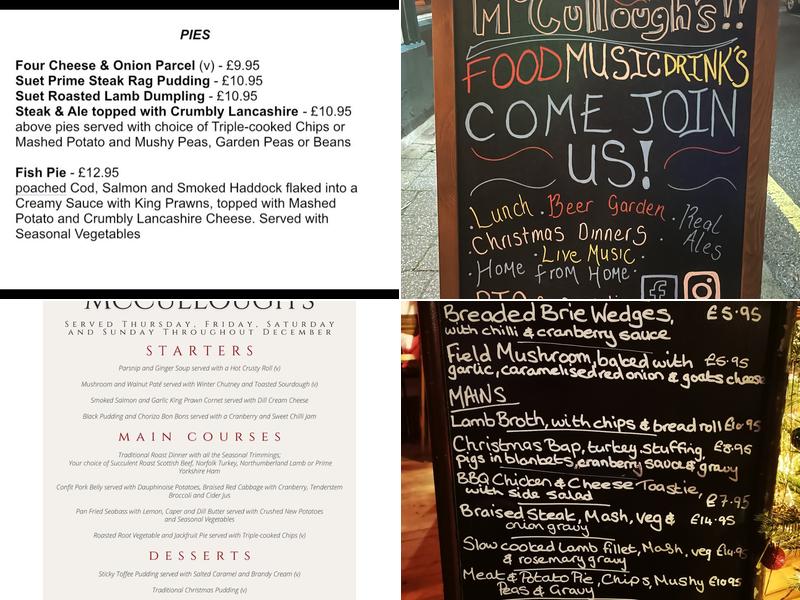 PIES
Four Cheese & Onion Parcel (v) - £9.95
Suet Prime Steak Rag Pudding - £10.95
Suet Roasted Lamb Dumpling - £10.95
Steak & Ale topped with Crumbly Lancashire - £10.95
above pies served with choice of Triple-cooked Chips or
Mashed Potato and Mushy Peas, Garden Peas or Beans
Fish Pie - £12.95
poached Cod, Salmon and Smoked Haddock flaked into a
Creamy Sauce with King Prawns, topped with Mashed
Potato and Crumbly Lancashire Cheese. Served with
Seasonal Vegetables
McCullough's!!
FOOD MUSIC DRINK'S
COME JOIN
US!
· Lunch · Beer Garden · Real
Ales
Christmas Dinners
· Live Music ·
· Home from Home ·
McCULLOUGH'S
SERVED THURSDAY, FRIDAY, SATURDAY
AND SUNDAY THROUGHOUT DECEMBER
STARTERS
Parsnip and Ginger Soup served with a Hot Crusty Roll (v)
Mushroom and Walnut Paté served with Winter Chutney and Toasted Sourdough (v)
Smoked Salmon and Garlic King Prawn Cornet served with Dill Cream Cheese
Black Pudding and Chorizo Bon Bons served with a Cranberry and Sweet Chilli Jam
MAIN COURSES
Traditional Roast Dinner with all the Seasonal Trimmings;
Your choice of Succulent Roast Scottish Beef, Norfolk Turkey, Northumberland Lamb or Prime
Yorkshire Ham
Confit Pork Belly served with Dauphinoise Potatoes, Braised Red Cabbage with Cranberry, Tenderstem
Broccoli and Cider Jus
Pan Fried Seabass with Lemon, Caper and Dill Butter served with Crushed New Potatoes
and Seasonal Vegetables
Roasted Root Vegetable and Jackfruit Pie served with Triple-cooked Chips (v)
DESSERTS
Sticky Toffee Pudding served with Salted Caramel and Brandy Cream (v)
Traditional Christmas Pudding (v)
Breaded Brie Wedges, £5.95
with chilli & cranberry sauce
Field Mushroom, baked with £6.95
garlic, caramelised red onion & goats cheese
MAINS
Lamb Broth, with chips & bread roll £10.95
Christmas Bap, turkey, stuffing, £8.95
pigs in blankets, cranberry sauce & gravy
BBQ Chicken & Cheese Toastie,
with side salad £7.95
Braised Steak, Mash, veg & £14.95
onion gravy
Slow cooked Lamb fillet, Mash, veg £14.95
& rosemary gravy
Meat & Potato Pie, Chips, Mushy £10.95
Peas & Gravy